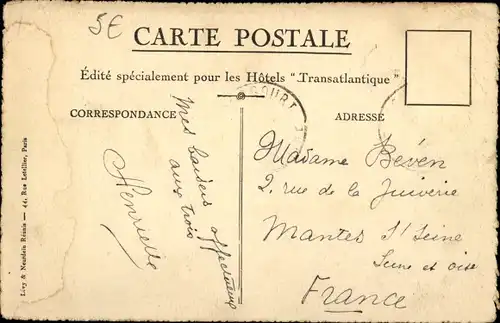 5€
CARTE POSTALE
Édité spécialement pour les Hôtels "Transatlantique"
CORRESPONDANCE
Mes baisers affectueux
aux trois
Henriette
ADRESSE
Madame Béven
2, rue de la Juiverie
Mantes S/ Seine
Seine et Oise
France
Lévy & Neurdein Réunis — 44, Rue Letellier, Paris